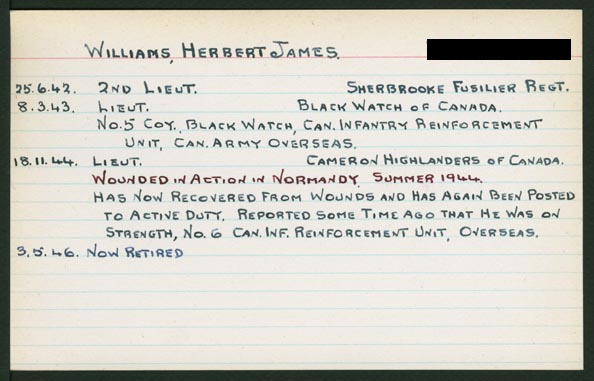 WILLIAMS, HERBERT JAMES.
25.6.42. 2ND LIEUT. SHERBROOKE FUSILIER REGT.
8.3.43. LIEUT. BLACK WATCH OF CANADA.
NO.5 COY., BLACK WATCH, CAN. INFANTRY REINFORCEMENT
UNIT, CAN. ARMY OVERSEAS.
18.11.44. LIEUT. CAMERON HIGHLANDERS OF CANADA.
WOUNDED IN ACTION IN NORMANDY, SUMMER 1944.
HAS NOW RECOVERED FROM WOUNDS AND HAS AGAIN BEEN POSTED
TO ACTIVE DUTY. REPORTED SOME TIME AGO THAT HE WAS ON
STRENGTH, NO. 6 CAN. INF. REINFORCEMENT UNIT, OVERSEAS.
3.5.46. NOW RETIRED